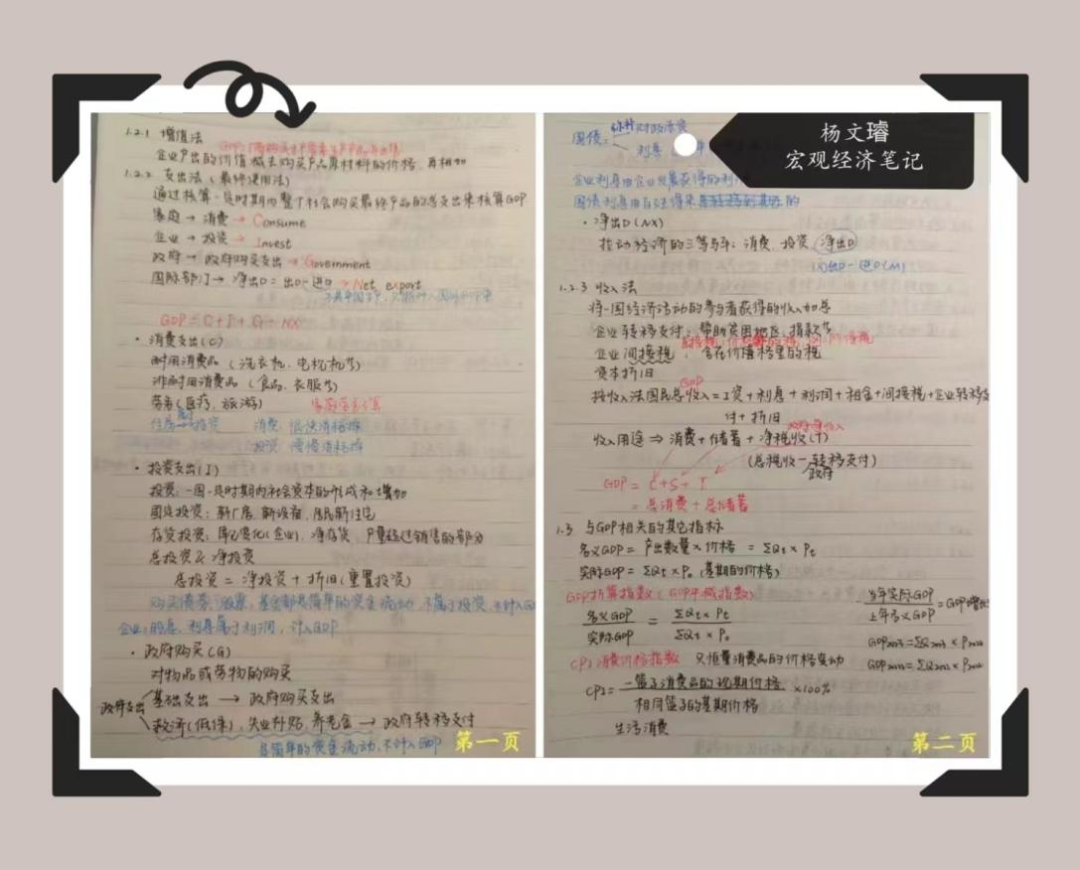 杨文璿
宏观经济笔记
1.2.1 增值法
企业产出的价值减去购买产品原材料的价格，再相加
1.2.2 支出法（最终使用法）
通过核算一定时期内整个社会购买最终产品的总支出来核算GDP
家庭 → 消费 → Consume
企业 → 投资 → Invest
政府 → 政府购买支出 → Government
国际部门 → 净出口 = 出口-进口 → Net export
GDP = C + I + G + NX
· 消费支出(C)
耐用消费品（洗衣机、电视机等）
非耐用消费品（食品、衣服等）
劳务（医疗、旅游）
住房→投资 消费：很快消耗掉
投资：慢慢消耗掉
· 投资支出(I)
投资：一国一定时期内社会资本的形成和增加
固定投资：新厂房、新设备、居民新住宅
存货投资：库存变化(企业)、净存货、产量超过销售的部分
总投资≥净投资
总投资 = 净投资 + 折旧(重置投资)
购买债券、股票、基金都是简单的资金流动，不属于投资，不计入GDP
利息属于利润，计入GDP
· 政府购买(G)
对物品或劳物的购买
政府支出
基础支出 → 政府购买支出
救济(低保)、失业补贴、养老金 → 政府转移支付
是简单的资金流动，不计入GDP
第一页
国债：
利息
· 净出口(NX)
拉动经济的三驾马车：消费、投资、净出口
出口-进口(M)
1.2.3 收入法
将一国经济活动的参与者获得的收入加总
企业转移支付：帮助贫困地区、捐款等
企业间接税：含在价格里的税
资本折旧
按收入法国民总收入=工资+利息+利润+租金+间接税+企业转移支
付+折旧
收入用途 ⇒ 消费+储蓄+净税收(T)
(总税收-转移支付)
政府
GDP = C+S+T
= 总消费+总储蓄
1.3 与GDP相关的其它指标
名义GDP = 产出数量×价格 = ΣQt × Pt
实际GDP = ΣQt × P₀ (基期的价格)
GDP折算指数(GDP平减指数)
名义GDP/实际GDP = ΣQt × Pt/ΣQt × P₀
CPI消费价格指数 只衡量消费品的价格变动
CPI = 一篮子消费品的现期价格/相同篮子的基期价格 ×100%
生活消费
第二页